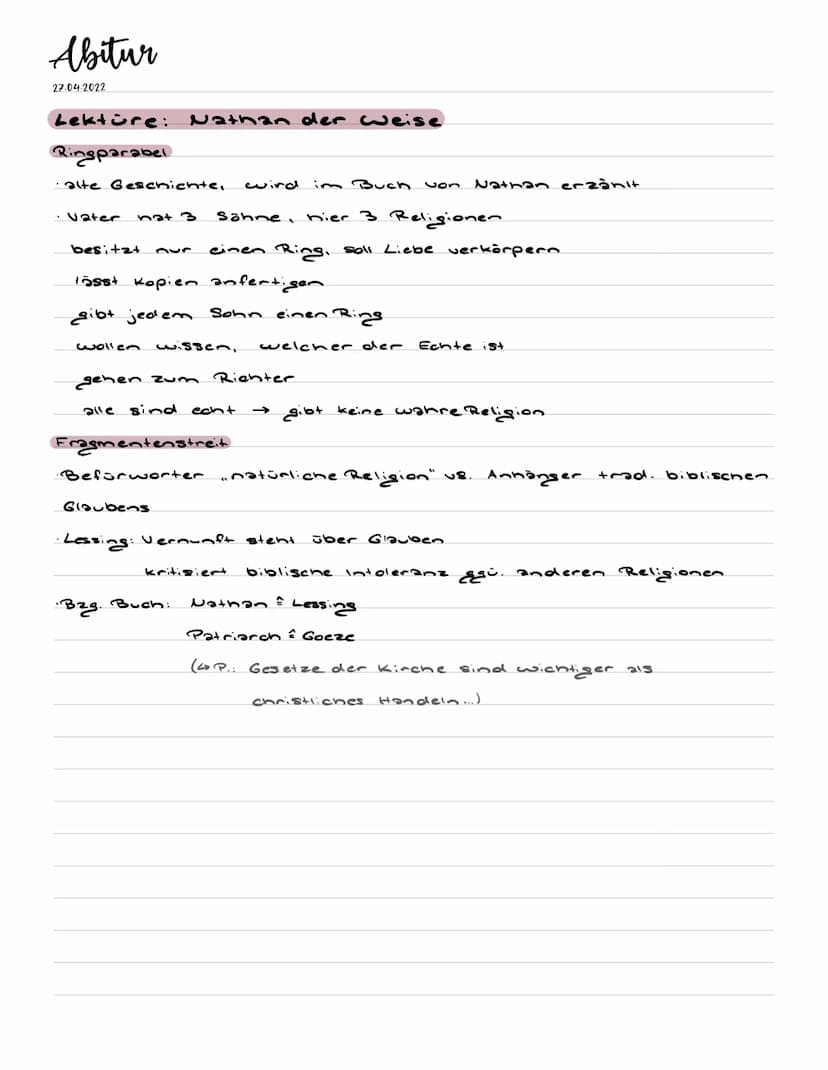 Abitur
27.04.2022
Lektüre: Nathan der Weise
Ringparabel
· alte Geschichte, wird im Buch von Nathan erzählt
· Vater hat 3 Söhne, hier 3 Religionen
besitzt nur einen Ring, soll Liebe verkörpern
lässt Kopien anfertigen
gibt jedem Sohn einen Ring
wollen wissen, welcher der Echte ist
gehen zum Richter
alle sind echt → gibt keine wahre Religion
Fragmentenstreit
· Befürworter „natürliche Religion" vs. Anhänger trad. biblischen
Glaubens
· Lessing: Vernunft steht über Glauben
kritisiert biblische Intoleranz ggü. anderen Religionen
· Bzg. Buch: Nathan ≙ Lessing
Patriarch ≙ Goeze
(↪ P.: Gesetze der Kirche sind wichtiger als
christliches Handeln...)